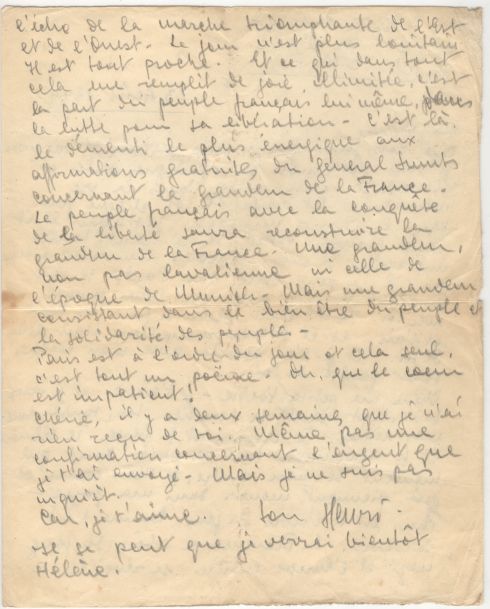 l'écho de la marche triomphante de l'Est
et de l'Ouest. Le jour n'est plus lointain
Il est tout proche. Et ce qui dans tout
cela me remplit de joie illimitée, c'est
la part du peuple français lui même, dans
la lutte pour sa libération. C'est là,
le démenti le plus énergique aux
affirmations gratuites du Général Smuts
concernant la grandeur de la France.
Le peuple français avec la conquête
de la liberté saura reconstruire la
grandeur de la France. Une grandeur,
non pas lavalienne ni celle de
l'époque de Munich. Mais une grandeur
consistant dans le bien être du peuple et
la solidarité des peuples.
Paris est à l'ordre du jour et cela seul,
c'est tout un poème. Oh, que le coeur
est impatient!
Chérie, il y a deux semaines que je n'ai
rien reçu de toi. Même pas une
confirmation concernant l'argent que
je t'ai envoyé. Mais je ne suis pas
inquiet.
Car, je t'aime. Ton Henri.
Il se peut que je verrai bientôt
Hélène.